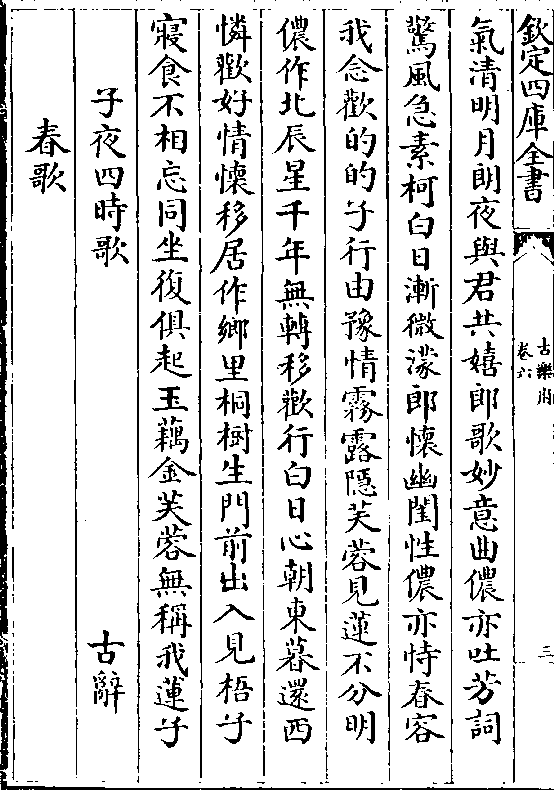 欽定四庫全書
古樂府
卷六
三
氣清明月朗夜與君共嬉郎歌妙意曲儂亦吐芳詞
驚風急素柯白日漸微濛郎懷幽閨性儂亦恃春容
我念歡的的子行由豫情霧露隱芙蓉見蓮不分明
儂作北辰星千年無轉移歡行白日心朝東暮還西
憐歡好情懷移居作鄉里桐樹生門前出入見梧子
寢食不相忘同坐復俱起玉藕金芙蓉無稱我蓮子
子夜四時歌 古辭
春歌